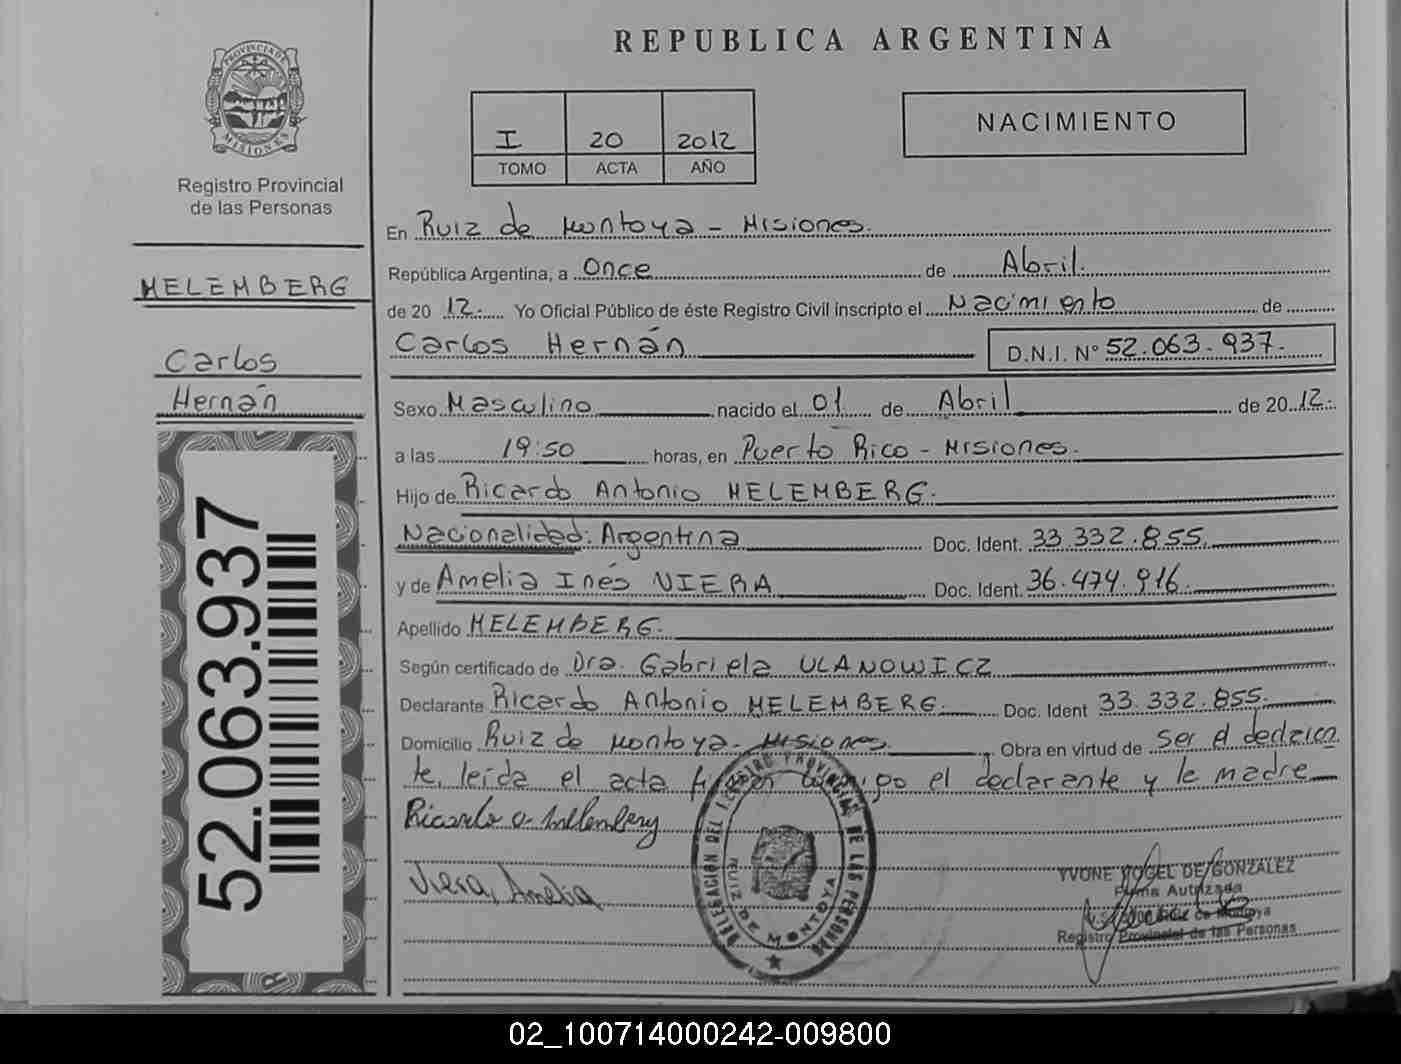 REPUBLICA ARGENTINA
PROVINCIA DE
MISIONES
Registro Provincial
de las Personas
MELEMBERG
Carlos
Hernán
52.063.937
I 20 2012
TOMO ACTA AÑO
NACIMIENTO
En Ruiz de Montoya - Misiones.
República Argentina, a Once de Abril.
de 20 12.- Yo Oficial Público de éste Registro Civil inscripto el Nacimiento de
Carlos Hernán D.N.I. N° 52.063.937.-
Sexo Masculino nacido el 01 de Abril de 20 12.-
a las 19:50 horas, en Puerto Rico - Misiones.
Hijo de Ricardo Antonio MELEMBERG.
Nacionalidad: Argentina Doc. Ident. 33.332.855.
y de Amelia Inés VIERA Doc. Ident. 36.474.916.
Apellido MELEMBERG.
Según certificado de Dra. Gabriela ULANOWICZ
Declarante Ricardo Antonio MELEMBERG. Doc. Ident 33.332.855.
Domicilio Ruiz de Montoya - Misiones. Obra en virtud de ser el
te, leída el acta conmigo el declarante y la madre
Ricardo A. Melemberg
Viera, Amelia
DELEGACIÓN DEL REGISTRO PROVINCIAL DE LAS PERSONAS
RUIZ DE MONTOYA
YVONE VOGEL DE GONZALEZ
Firma Autorizada
de Montoya
Registro Provincial de las Personas
02_100714000242-009800